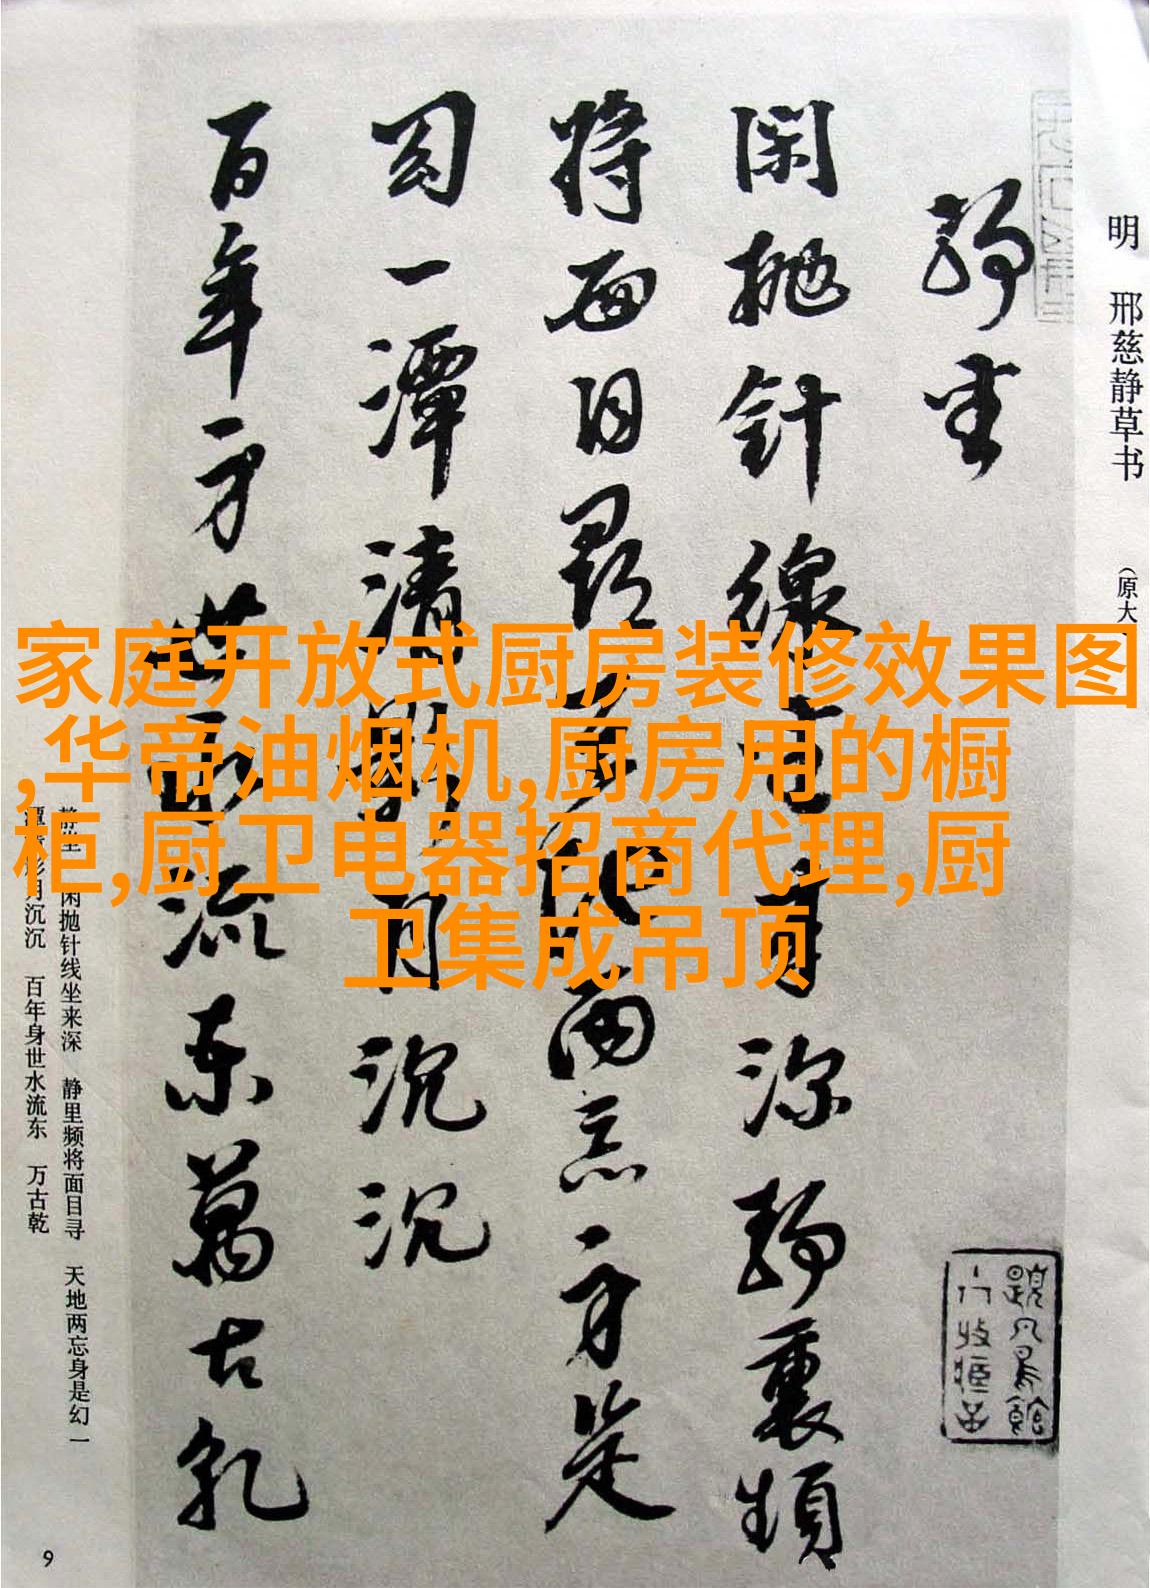 家庭开放式厨房装修效果图
,华帝油烟机,厨房用的橱
柜,厨卫电器招商代理,厨
卫集成吊顶
明 邢慈静草书 （原大
静坐
閑抛針線坐来深靜裏頻
将面目尋天地兩忘身是
幻一潭清影月沉沉
百年身世水流東萬古乾
闲抛针线坐来深 静里频将面目寻 天地两忘身是幻 一
月沉沉 百年身世水流东 万古乾
9